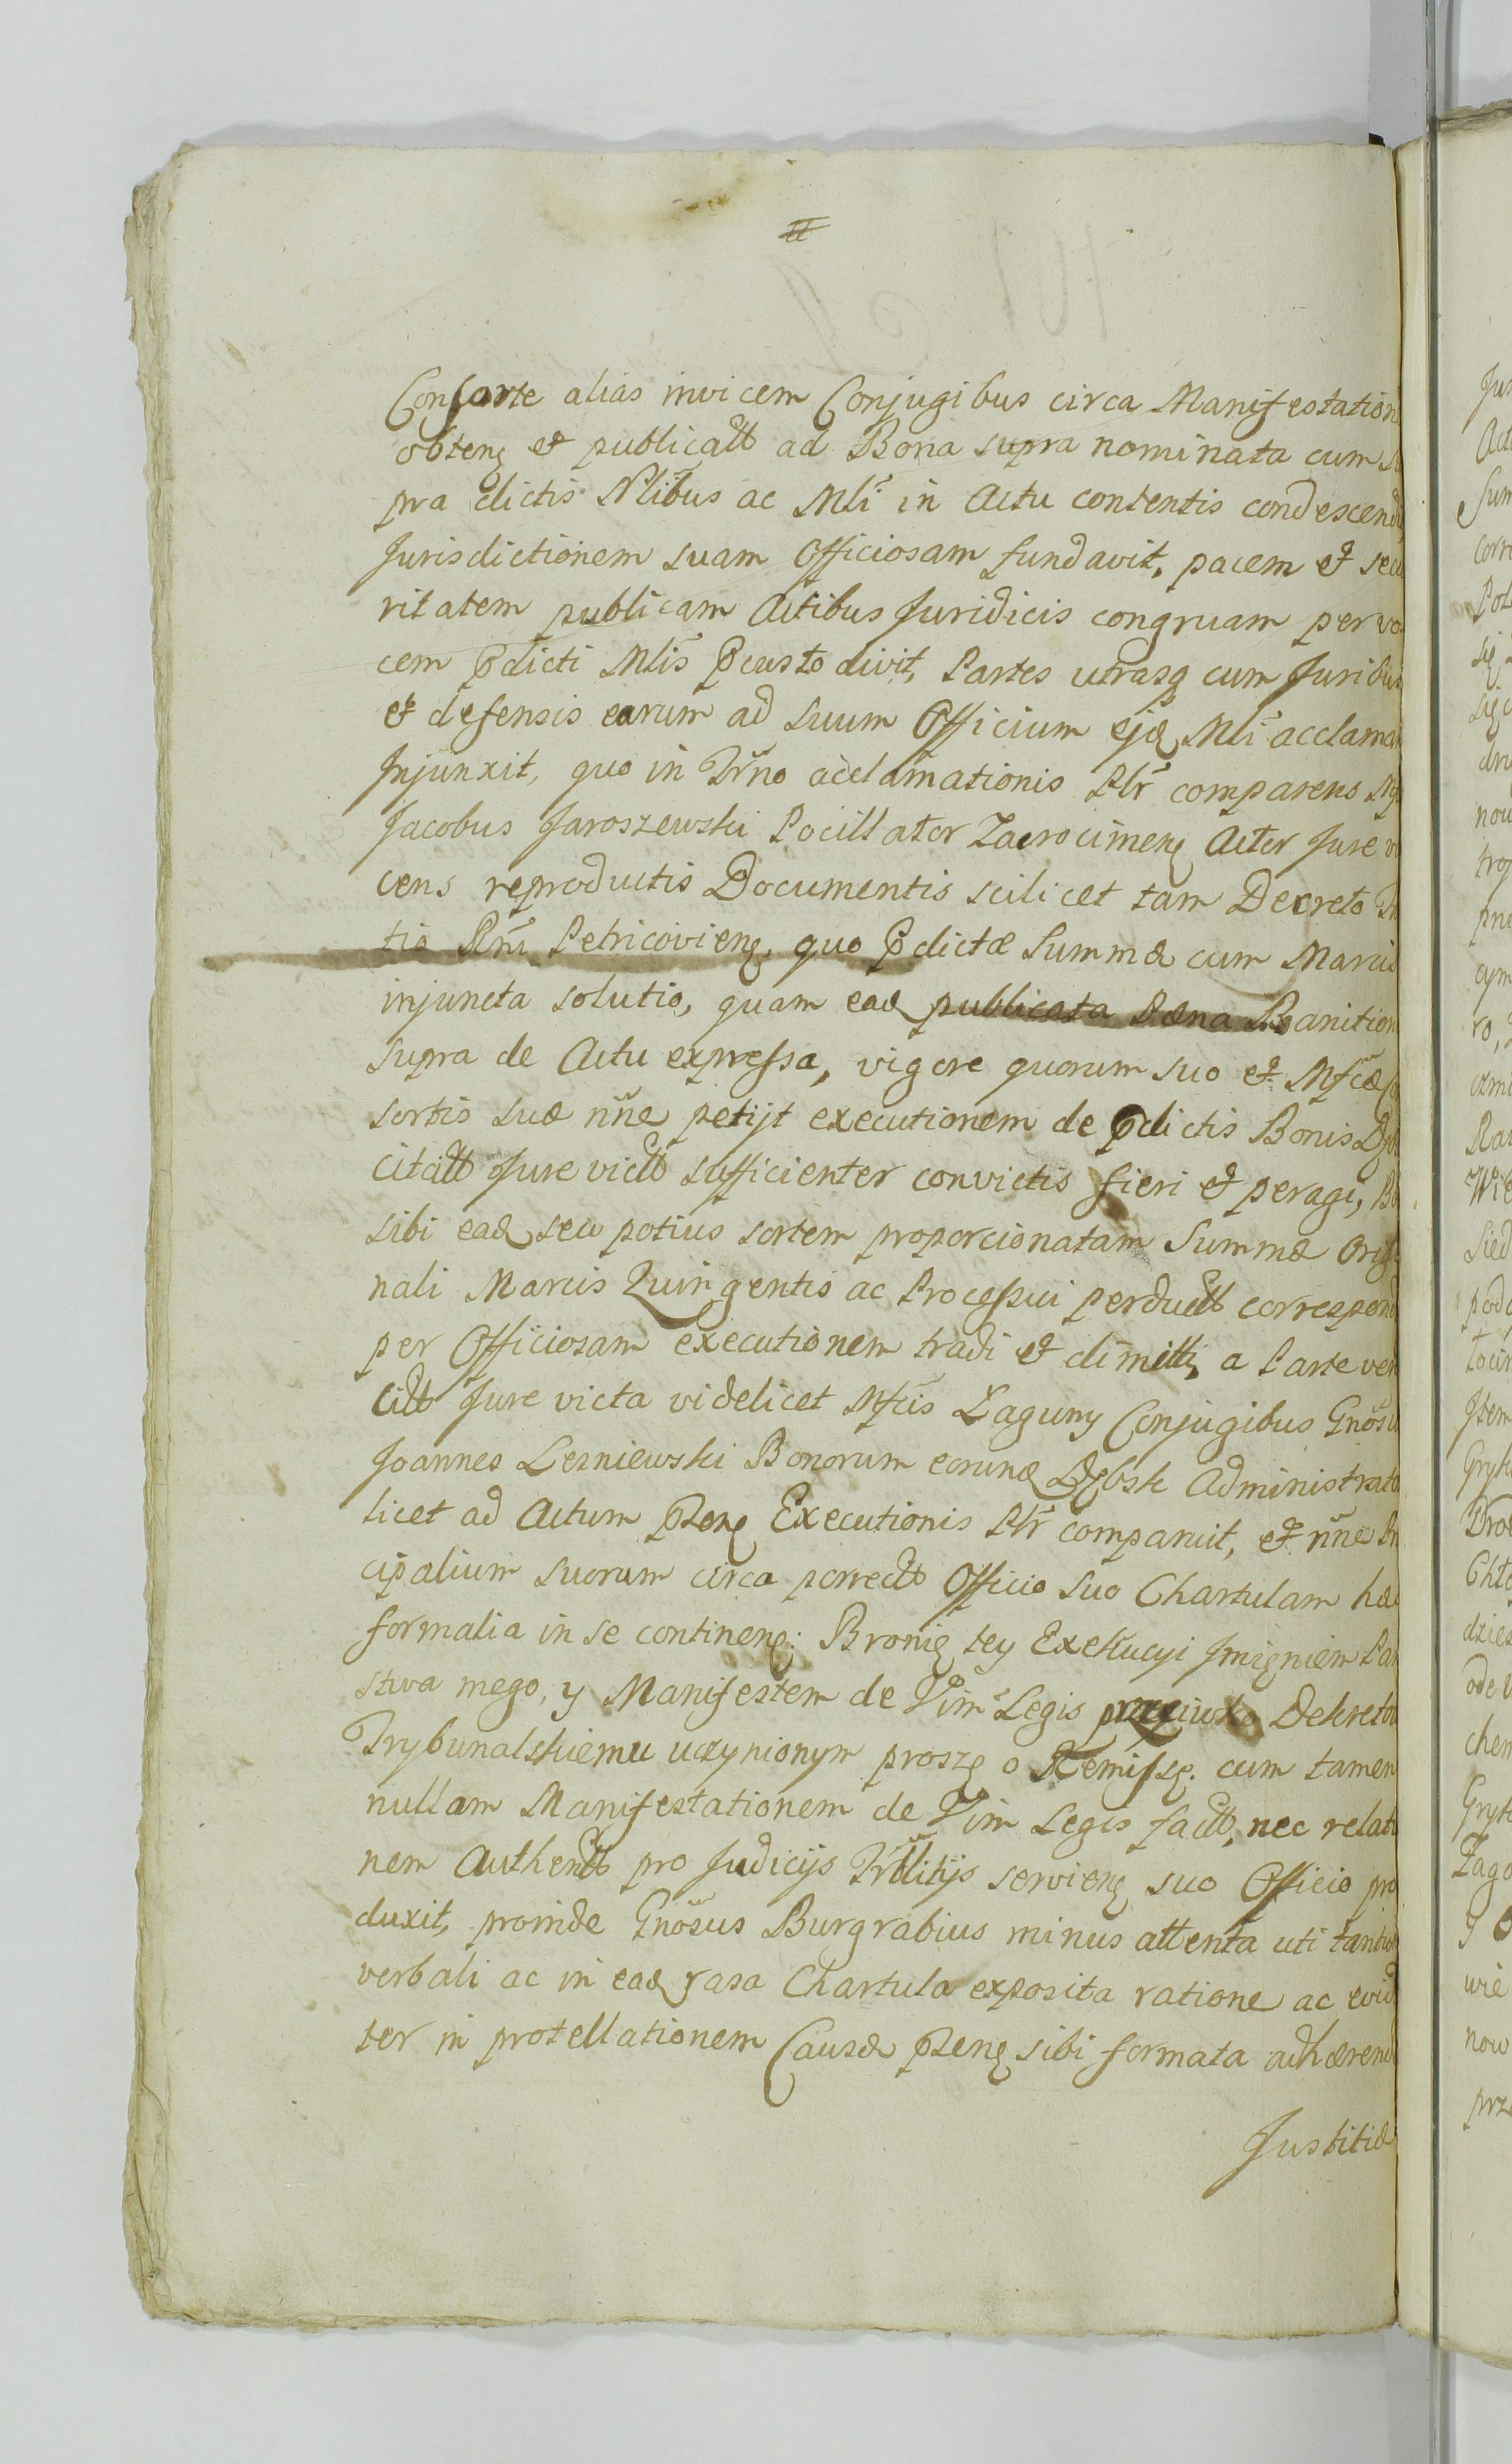 #
Consorte alias invicem Conjugibus circa Manifestation
obtenę et publicatt ad Bona supra nominata cum su
pra dictis Nlibus ac Mli in Actu contentis condescend
Jurisdictionem suam Officiosam fundavit, pacem et secu
ritatem publicam Actibus Juridicis congruam per vo
cem pdicti Mlis pcustodivit, Partes utrasq cum Juribus
et defensis earum ad Suum Officium ejd Mli acclamari
Injunxit, quo in Trno acclamationis Plr comparens
Jacobus Jaroszewski Pocillator Zacrocimenę Actor Jure
cens reproductis Documentis scilicet tam Decreto
tis Rni Petricovienę, quo pdictæ Summæ cum Marcis
injuncta solutio, quam ead publicata Pæna Banition
supra de Actu expressa, vigore quorum suo et Mfcæ
sortis suæ nne petijt executionem de pdictis Bonis
citatt Jure victt sufficienter convictis fieri et peragi,
sibi ead seu potius sortem proporcionatam Summæ origi
nali Marcis Quingentis ac Processui perductt correspond
per Officiosam executionem tradi et dimitti, a Parte vero
citt Jure victa videlicet Mfcis Łaguny Conjugibus Gnosus
Joannes Lesniewski Bonorum eorund Dębsk Administrator
licet ad Actum psenę Executionis Plr comparuit, et nne
cipalium suorum circa porrectt Officio suo Chartulam hæc
formalia in se continenę: Bronię tey Exekucyi Imięniem Pań
stwa mego, y Manifestem de Vim Legis przeciwko Dekretow
Trybunalskiemu uczynionym proszę o Remissę. cum tamen
nullam Manifestationem de Vim Legis factt, nec relatio
nem Authentt pro Judicijs Trblitijs servienę suo Officio pro
duxit, proinde Gnosus Burgrabius minus attenta uti tantum
verbali ac in ead rasa Chartula exposita ratione ac evid
ter in protellationem Causæ psenę sibi formata adhærend
Justitiæ